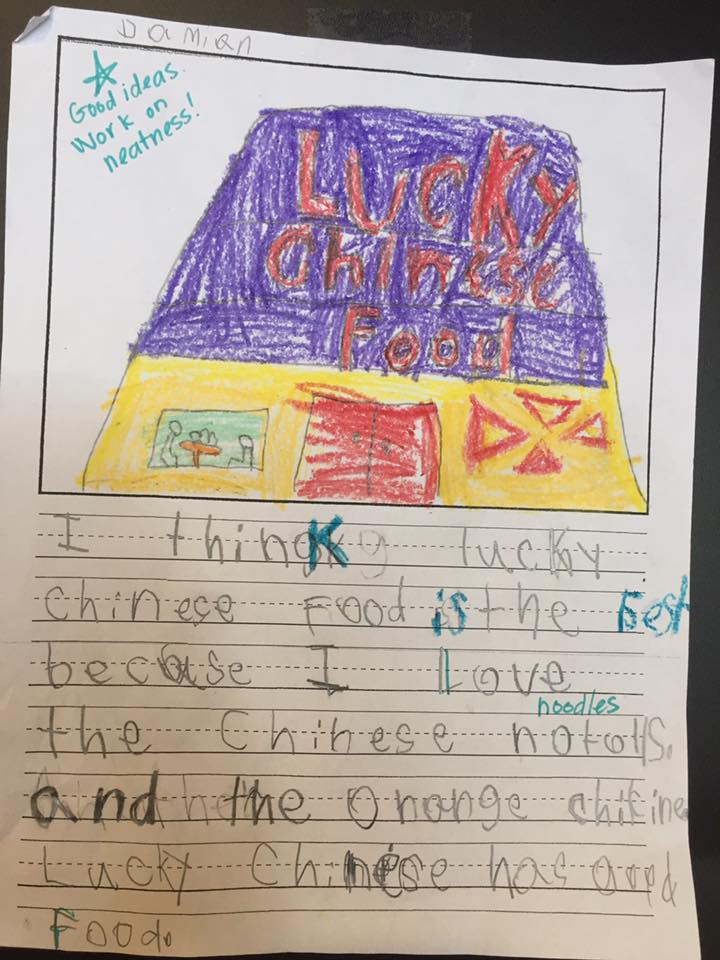 Damian
Good ideas.
Work on
neatness!
LUCKY
Chinese
Food
I thingk lucky
chinese Food is the Best
becuase I Love
noodles
the Chinese notolls.
and the Orange chikine
Lucky Chinese has good
Food.